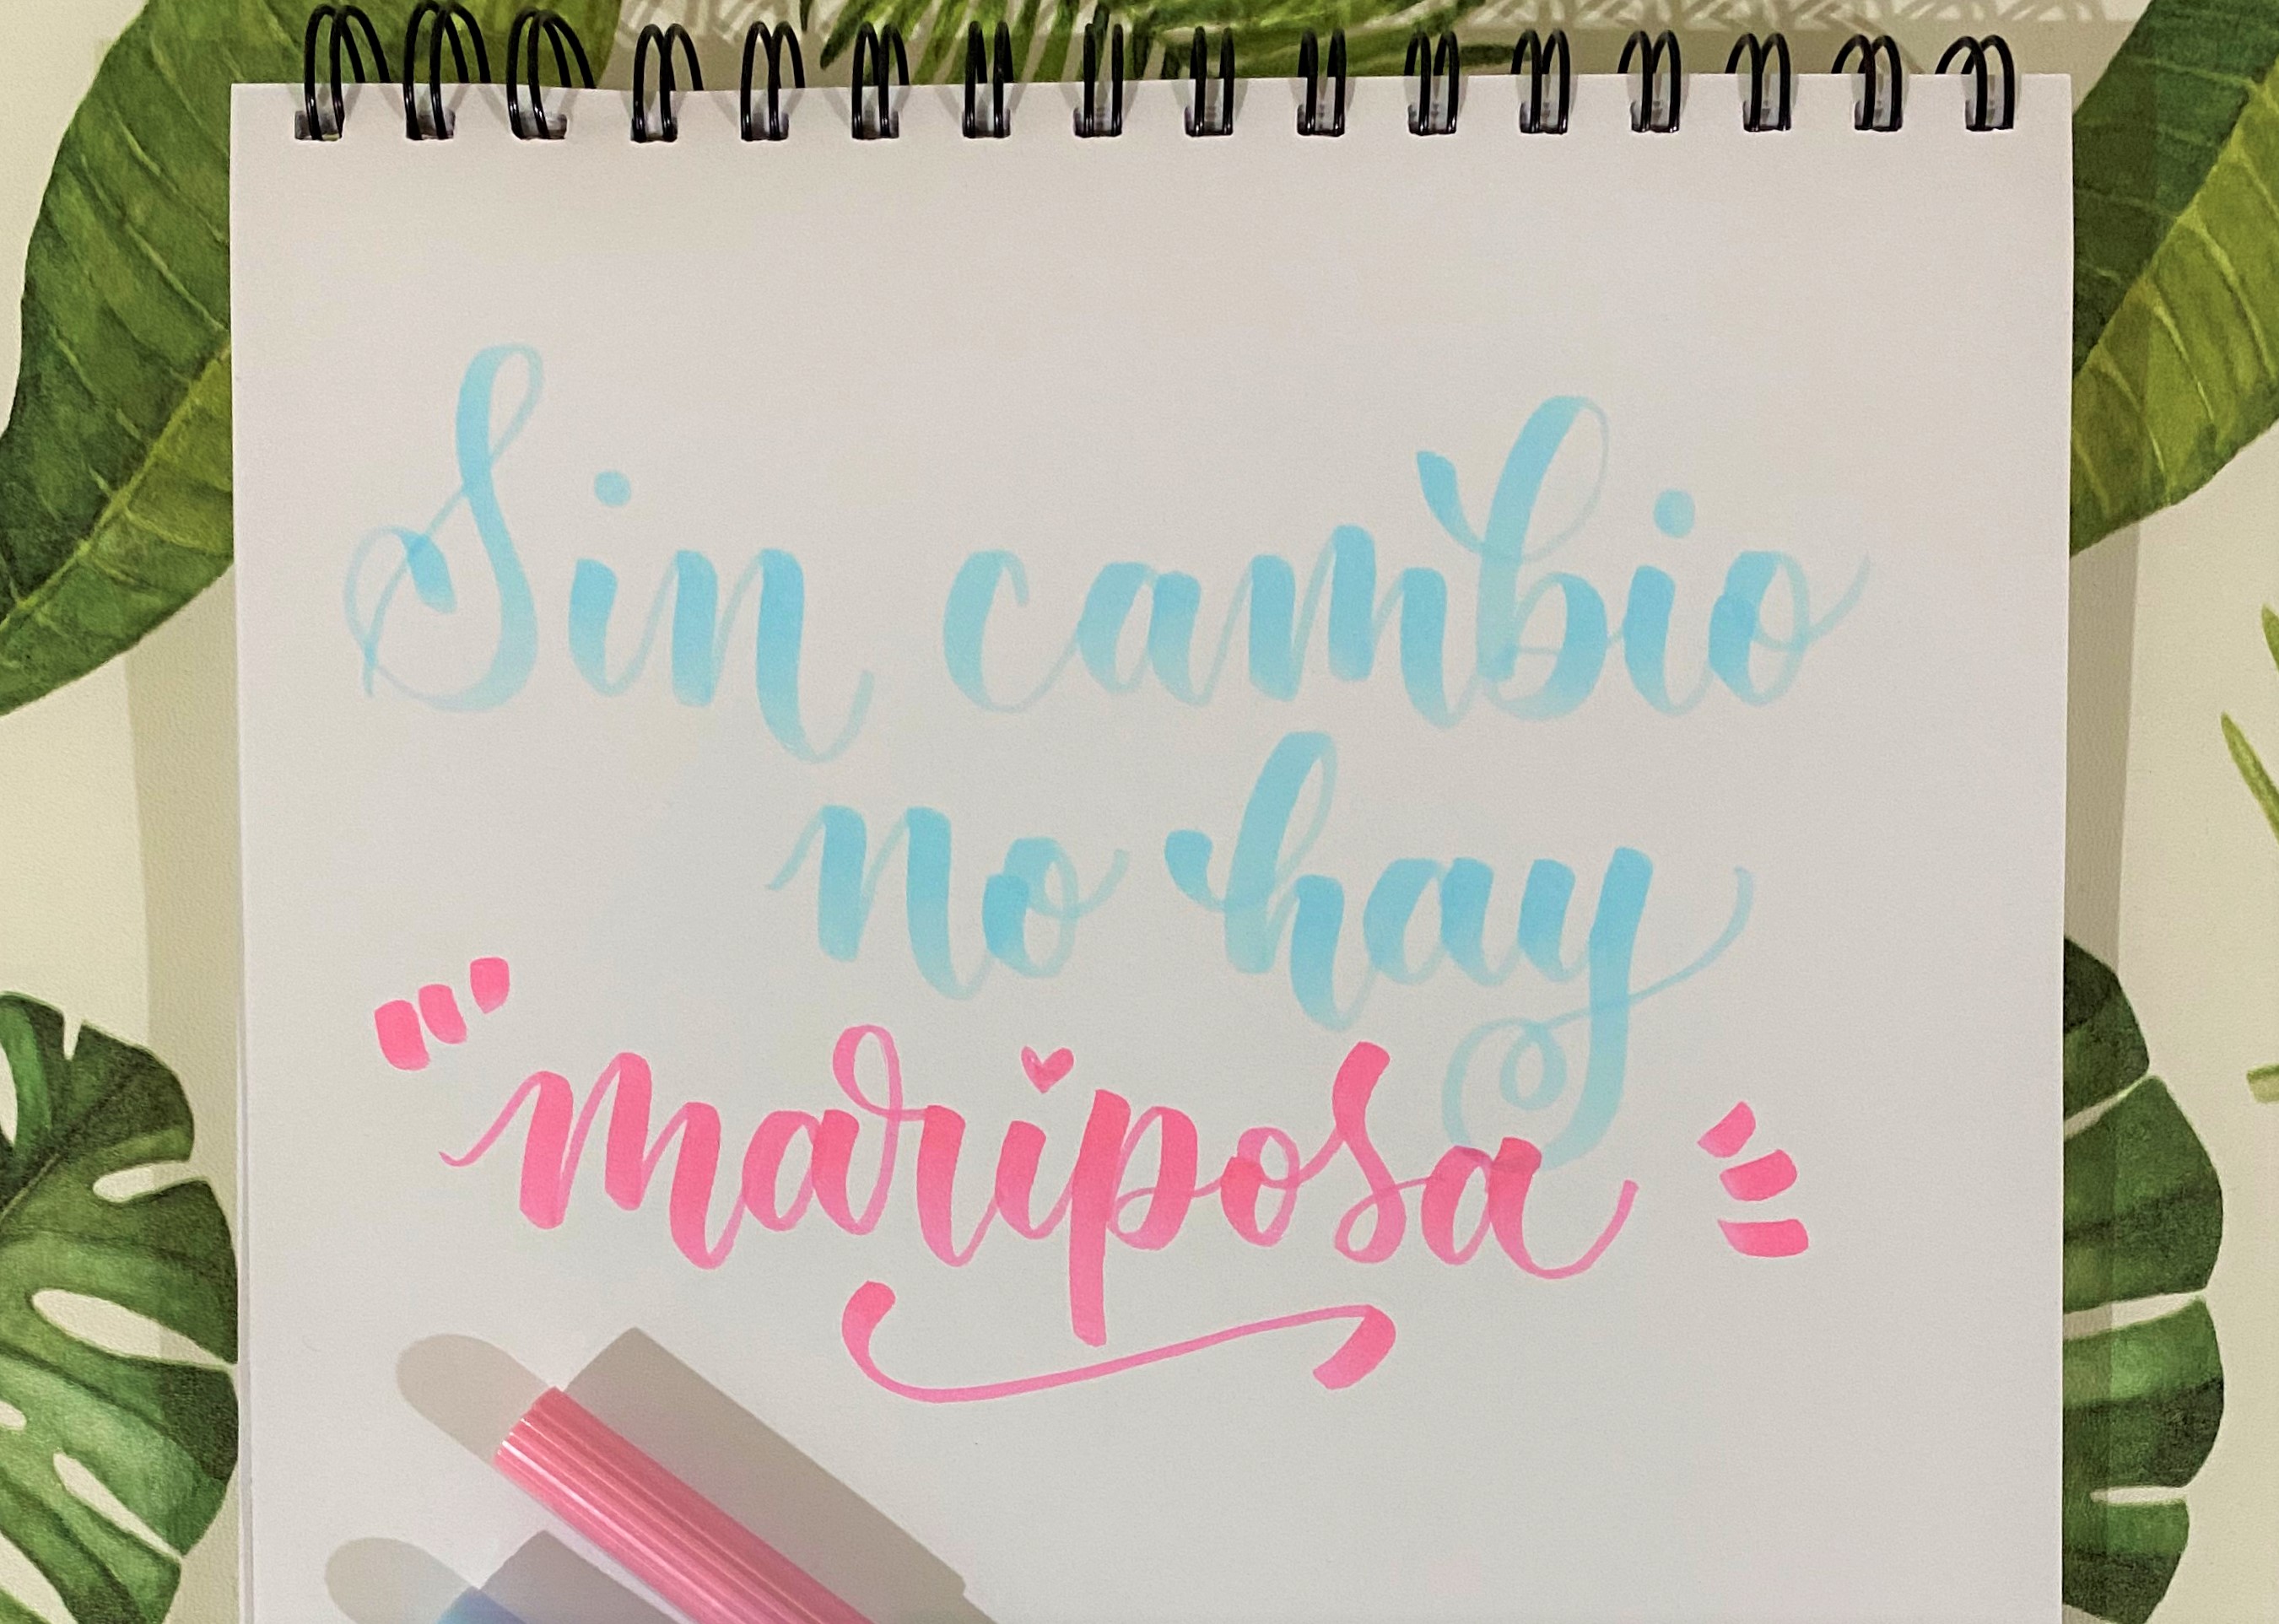 Sin cambio
no hay
mariposa